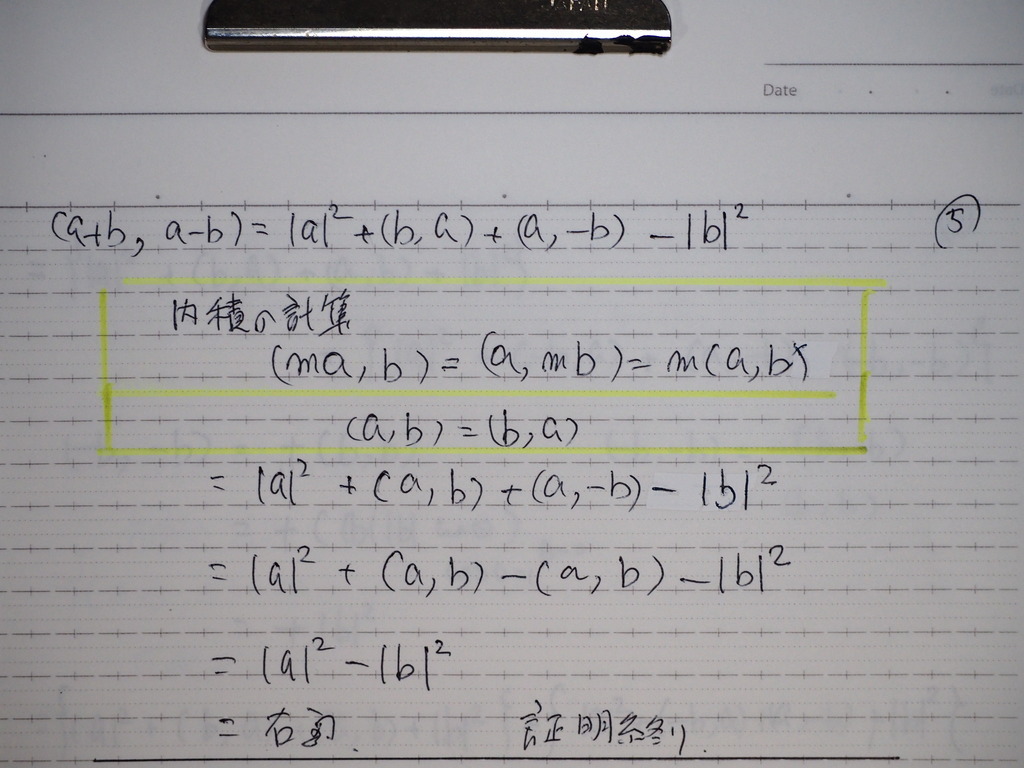 Date
(a+b, a-b) = |a|² + (b, a) + (a, -b) - |b|² ⑤
内積の計算
(ma, b) = (a, mb) = m(a, b)
(a, b) = (b, a)
= |a|² + (a, b) + (a, -b) - |b|²
= |a|² + (a, b) - (a, b) - |b|²
= |a|² - |b|²
= 右辺. 証明終り.